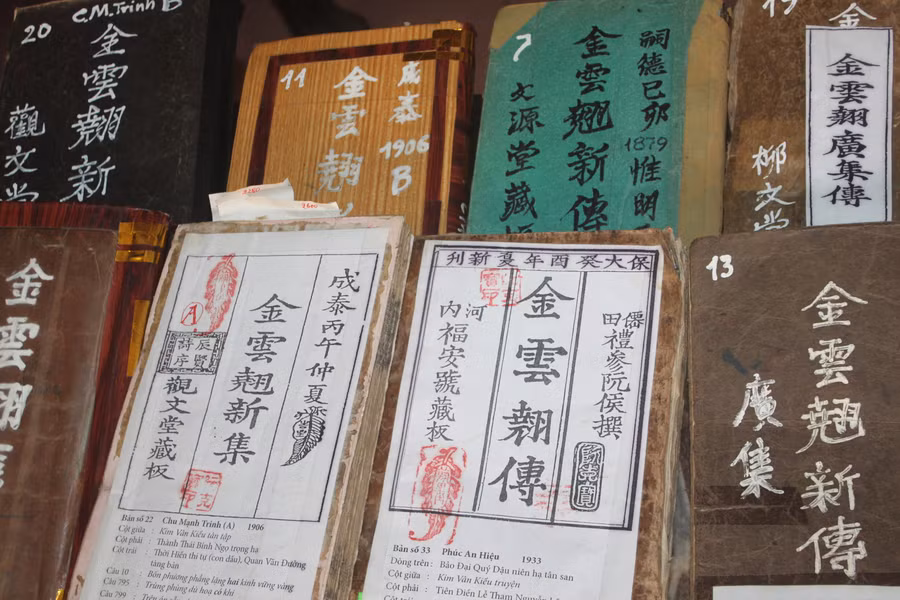 20
C.M.Trinh B
金雲翹新
觀文堂
11
成泰
1906
B
金雲翹
7
嗣德己卯
1879
惟明
金雲翹新傳
文源堂藏
金
金雲翹廣集傳
柳文堂
金雲翘
成泰丙午仲夏
金雲翹新集
A
辰賢
詩序
觀文堂藏板
Bản số 22 Chu Mạnh Trinh (A) 1906
Cột giữa : Kim Vân Kiều tân tập
Cột phải : Thành Thái Bính Ngọ trọng hạ
Cột trái : Thời Hiền thi tự (con dấu), Quan Văn Đường
tàng bản
Câu 10 : Bốn phương phẳng lặng hai kinh vững vàng
Câu 795 : Trùng phùng dù hoạ có khi
Câu 799
保大癸酉年夏新刊
僊田禮參阮侯撰
金雲翘傳
河內福安號藏板
Bản số 33 Phúc An Hiệu 1933
Dòng trên : Bảo Đại Quý Dậu niên hạ tân san
Cột giữa : Kim Vân Kiều truyện
Cột phải : Tiên Điền Lễ Tham Nguyễn
13
金雲翹新傳
廣集